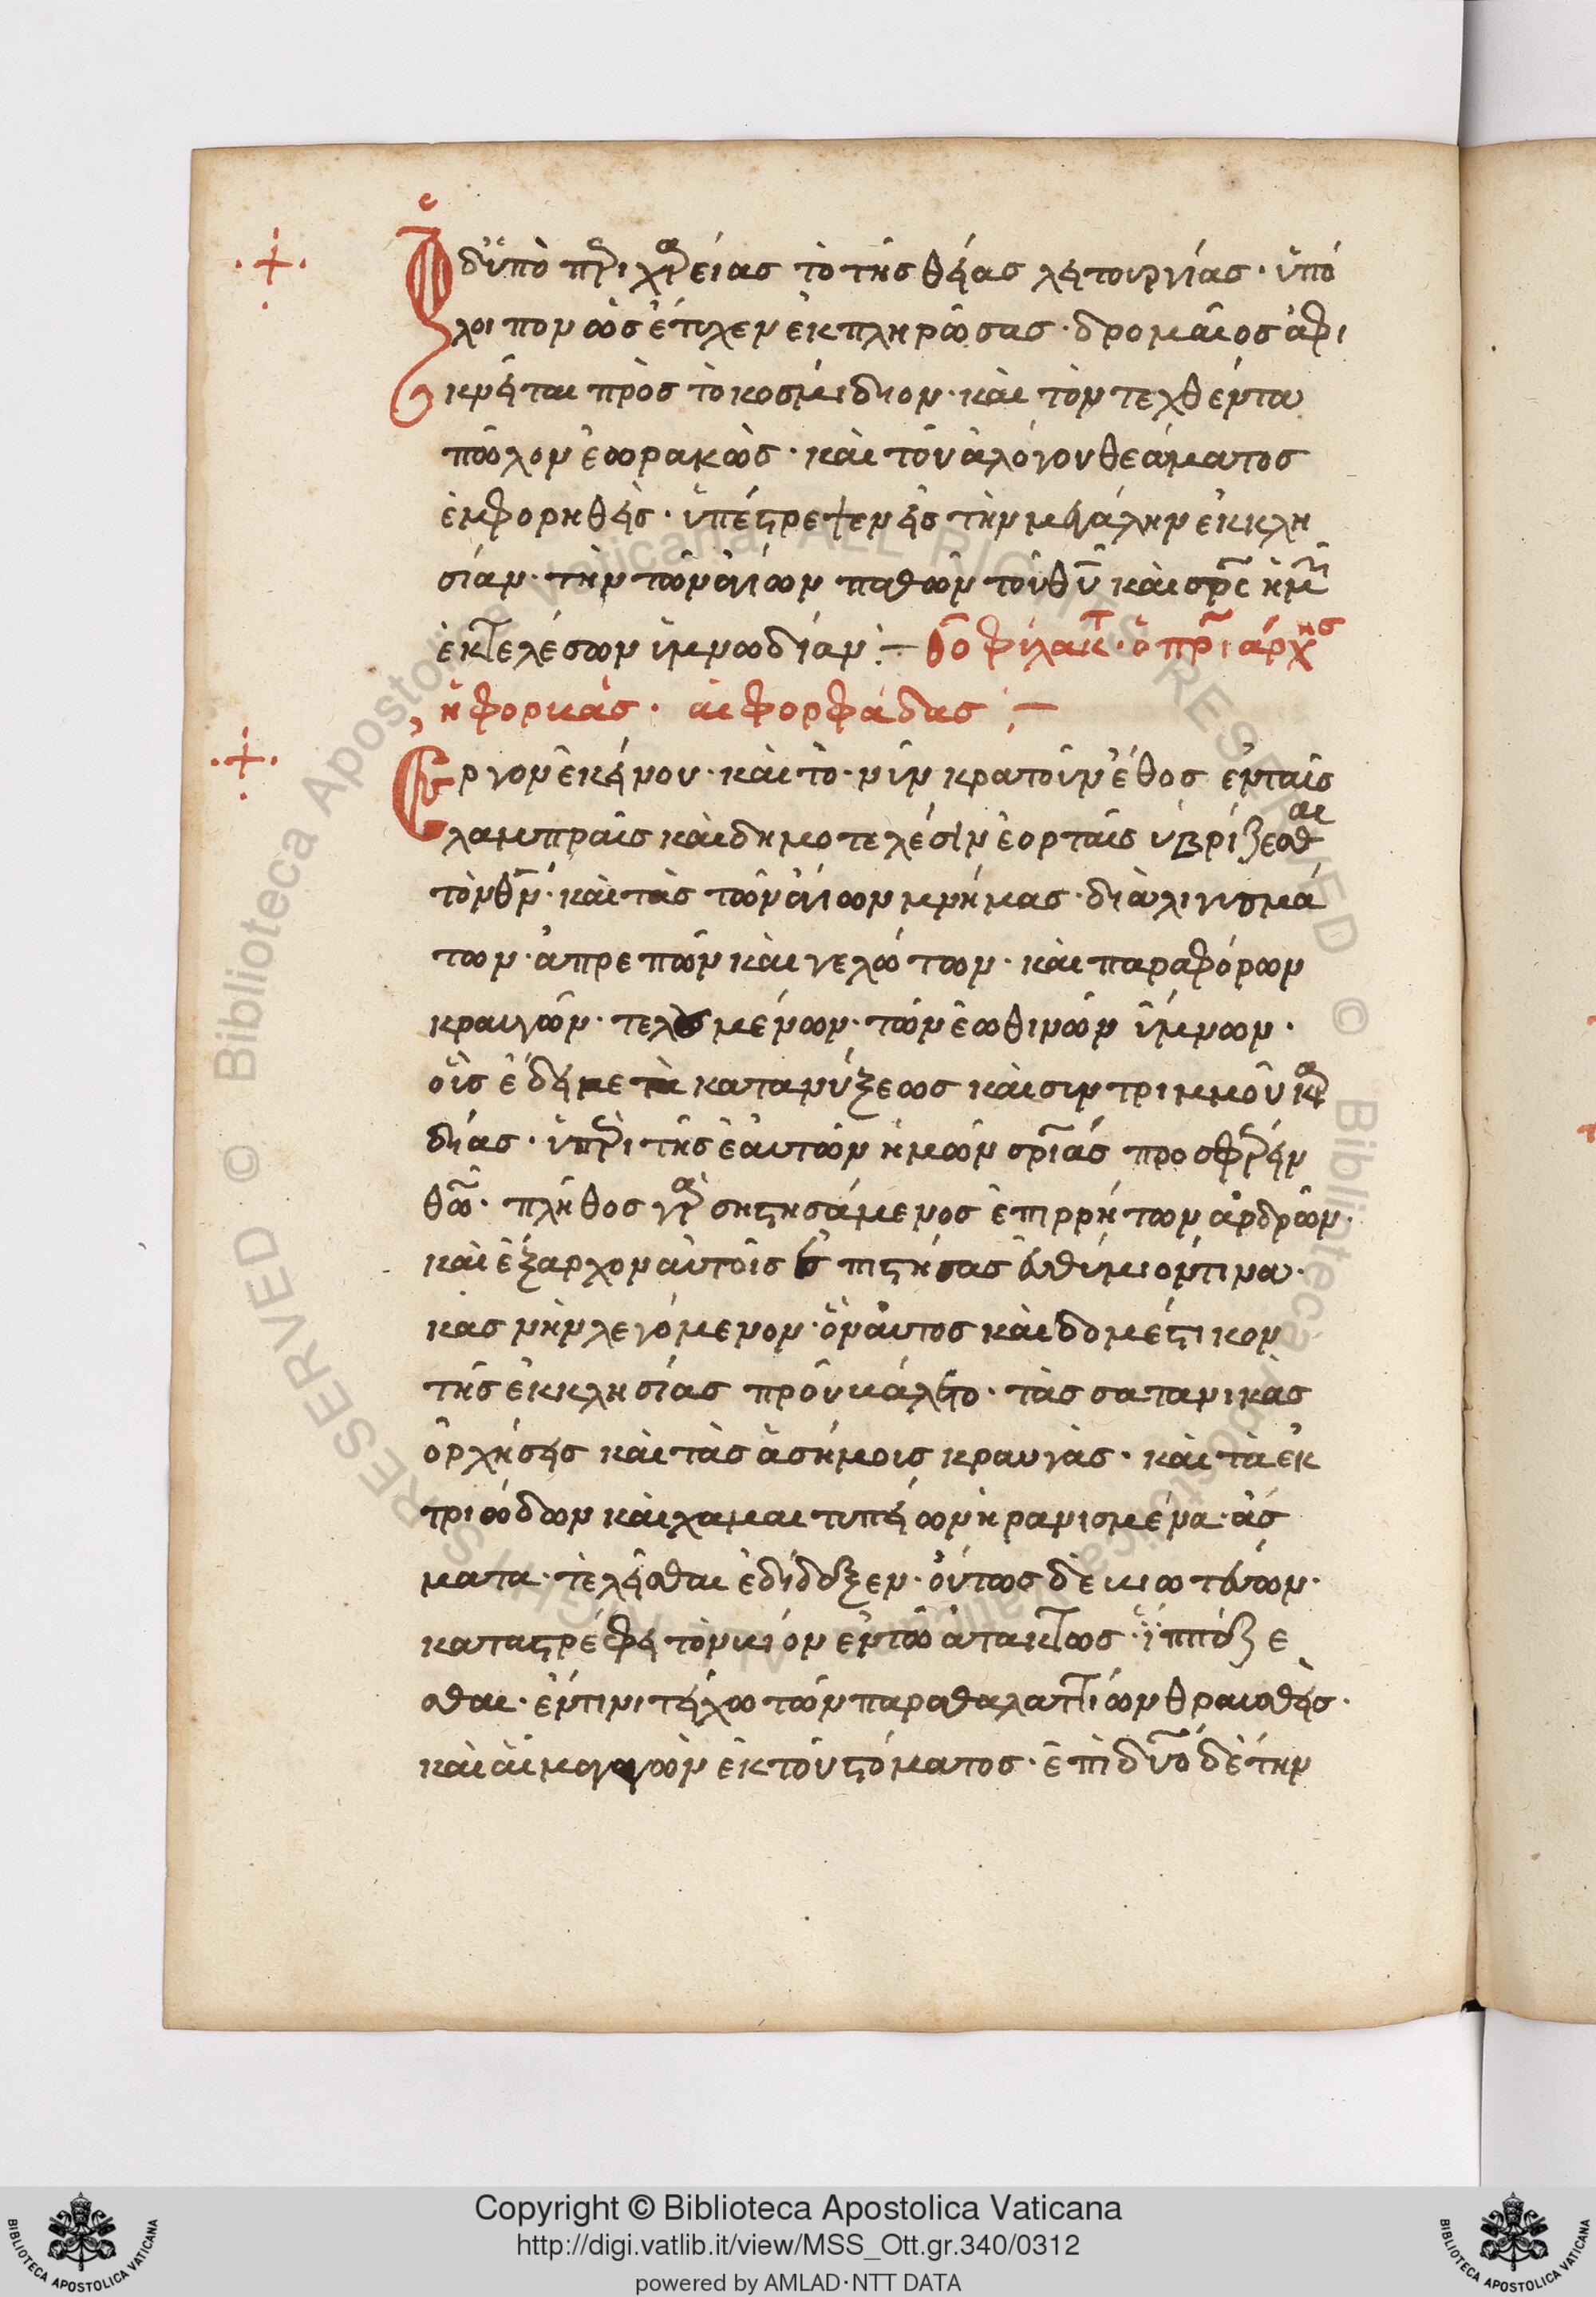 Ὁ δ' ὑπὸ περιχαρείας τὸ τῆς θείας λειτουργίας· ὑπό
λοιπον ὡς ἔτυχεν ἐκπληρῶσας· δρομαῖος ἀφι
κνεῖται πρὸς τὸ κοσμίδιον· καὶ τὸν τεχθέντα
πῶλον ἑωρακὼς· καὶ τοῦ ἀλόγου θεάματος
ἐμφορηθεὶς· ὑπέστρεψεν εἰς τὴν μεγάλην ἐκκλη
σίαν· τὴν τῶν ἁγίων παθῶν τοῦ θῦ καὶ σρς ἡμῶν
ἐκτελέσων ὑμνωδίαν :— θεοφίλακτ· ὁ πριάρχης
ἡ φορκὰς· αἱ φορφάδας :—
Ἔργον ἐκείνου· καὶ τὸ· νῦν κρατοῦν ἔθος ἐνταῖς
λαμπραῖς καὶ δημοτελέσϊν ἑορταῖς ὑβρίζεσθαι
τὸν θν· καὶ τὰς τῶν ἁγίων μνήμας· διὰ λιγισμά
των· ἀπρεπῶν καὶ γελώτων· καὶ παραφόρων
κραυγῶν· τελουμένων· τῶν ἑωθινῶν ὕμνων·
οὓς ἔδει μετὰ κατανύξεως καὶ σιντριμμοῦ καρ
δίας· ὑπὲρ τῆς ἑαυτῶν ἡμῶν σριάς προσφέρειν
θῶ· πλῆθος γὰρ σηστησάμενος ἐπιρρήτων ἀρδρῶν·
καὶ ἔξαρχον αὐτοῖς ἐπιστήσας εὐθύμιόν τινα·
κασνὴν λεγόμενον· ὃν αὐτος καὶ δομέστικον
τῆς ἐκκλησίας προὐκάλειτο· τὰς σατανικὰς
ὀρχήσεις καὶ τὰς ἀσήμοις κραυγὰς· καὶ τὰ ἐκ
τριώδων καὶ χαμαιτυπείων ἠρανισμένα· ἀς
ματα· τελεῖσθαι ἐδίδαξεν· οὕτως δὲ κιωτεύων·
καταστρέφει τὸν κιόν ἐν τῶ ἀτακτως ἱππάζε
σθαι· ἐν τινι τείχω τῶν παραθαλαττίων θραυσθεὶς·
καὶ αἷμα γαγὼν ἐκ τοῦ στόματος· ἐπὶ δύο δὲ την
Copyright © Biblioteca Apostolica Vaticana
http://digi.vatlib.it/view/MSS_Ott.gr.340/0312
powered by AMLAD·NTT DATA